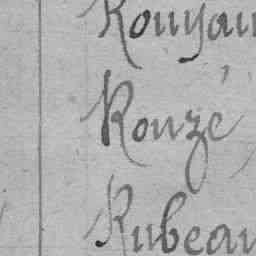 Rouyau
Rouzé
Rubeau